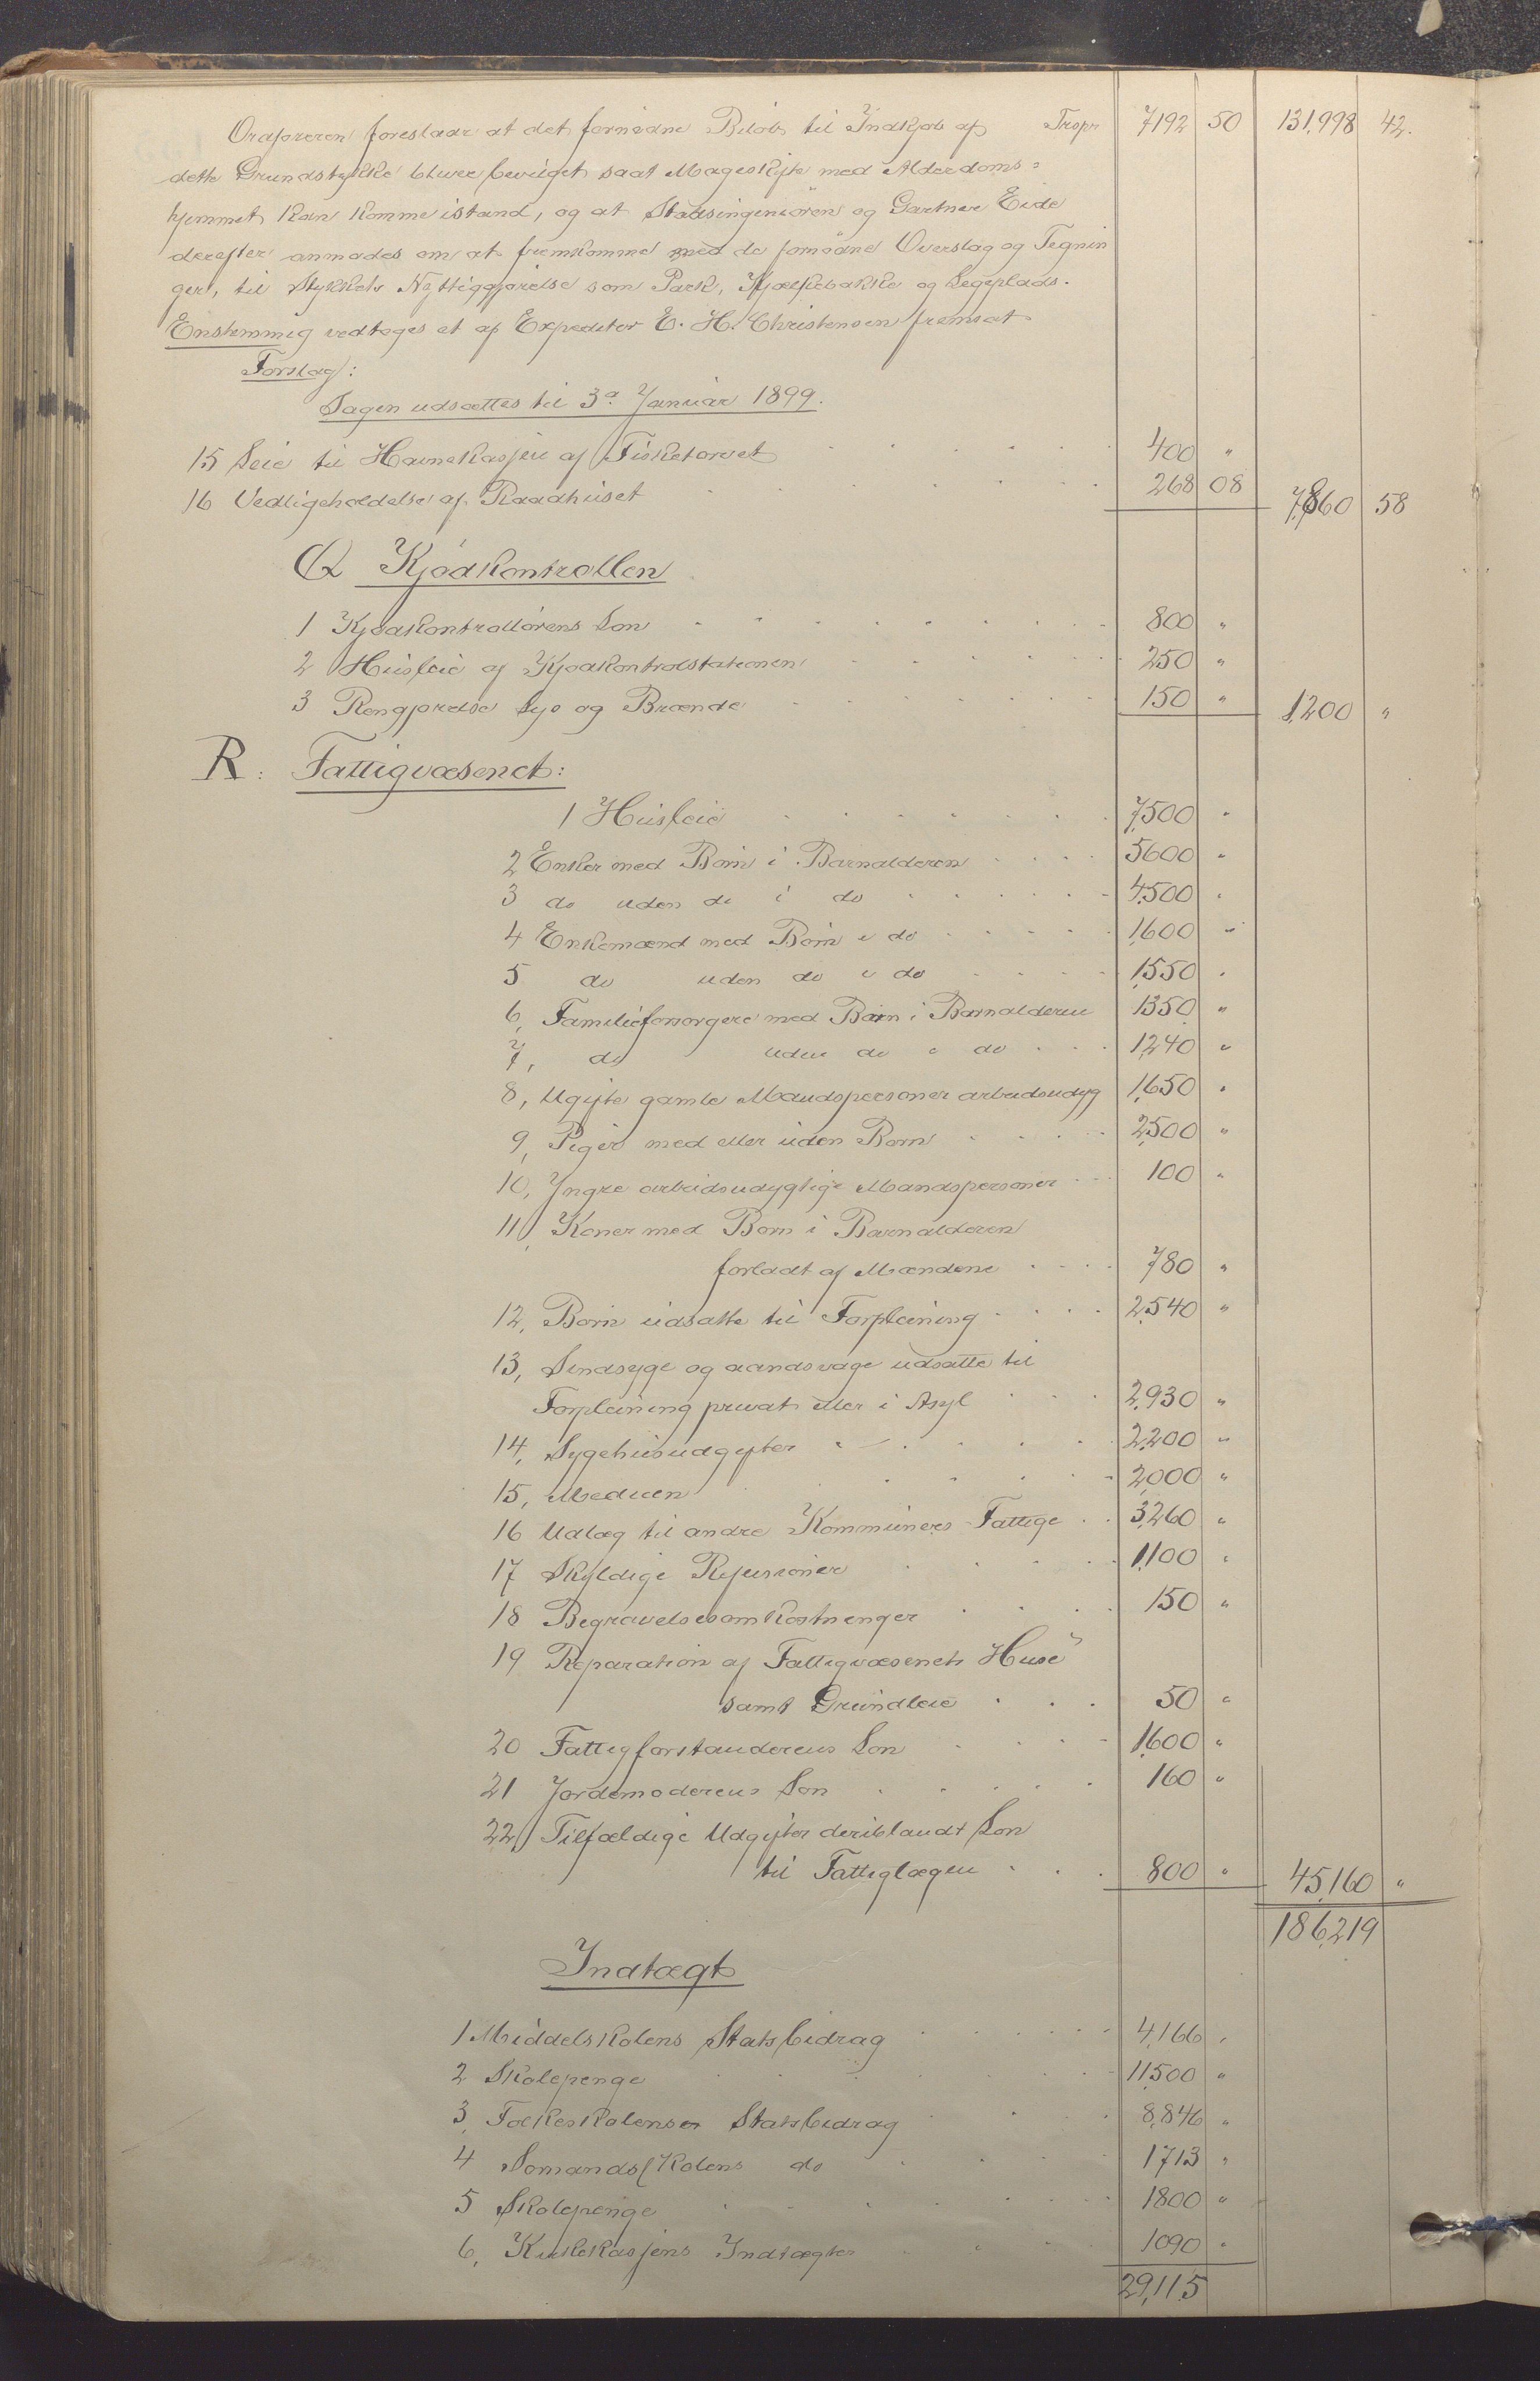 Ordføreren foreslaar at det fornødne Beløb til Indkjøb af Transp 7192 50 131,998 42.
dette Grundstykke bliver bevilget saat Mageskifte med Alderdoms=
hjemmet kan komme istand, og at Stadsingeniøren og Gartner Eide
derefter anmodes om at fremkomme med de fornødne Overslag og Tegnin
ger, til Stykkets Nyttiggjørelse som Park, Kjælkebakke og Legeplads.
Enstemmig vedtoges et af Expeditør E. H. Christensen fremsat
Forslag:
Sagen udsættes til 3a Januar 1899.
15 Leie til Havnekassen af Fisketorvet 400 "
16 Vedligeholdelse af Raadhuset 268 08 7,860 58
Q Kjødkontrollen
1 Kjødkontrollørens Løn 800 "
2 Husleie af Kjødkontrolstationen 250 "
3 Rengjørelse Lys og Brænde 150 " 1,200 "
R: Fattigvæsenet:
1 Husleie 7,500 "
2 Enker med Børn i Barnalderen 5600 "
3 do uden do i do 4,500 "
4 Enkemænd med Børn i do 1,600 "
5 do uden do i do 1,550 "
6, Familieforsørgere med Børn i Barnalderen 1350 "
7, do uden do i do 1,240 "
8, Ugifte gamle Mandspersoner arbeidsudyg 1,650 "
9, Piger med eller uden Børn 2,500 "
10, Yngre arbeidsudygtige Mandspersoner 100 "
11, Koner med Børn i Barnalderen
forladt af Mændene 780 "
12, Børn udsatte til Forpleining 2,540 "
13, Sindsyge og aandsvage udsatte til
Forpleining privat eller i Asyl 2,930 "
14, Sygehusudgifter 2,200 "
15, Medicin 2,000 "
16 Udlæg til andre Kommuners Fattige 3,260 "
17 Skyldige Refusioner 1,100 "
18 Begravelsesomkostninger 150 "
19 Reparation af Fattigvæsenets Huse
samt Grundleie 50 "
20 Fattigforstanderens Løn 1,600 "
21 Jordemoderens Løn 160 "
22, Tilfældige Udgifter deriblandt Løn
til Fattiglægen 800 " 45,160 "
186,219
Indtægt
1 Middelskolens Statsbidrag 4,166 "
2 Skolepenge 11,500 "
3, Folkeskolens Statsbidrag 8,846 "
4 Sømandsskolens do 1713 "
5 Skolepenge 1800 "
6, Kirkekassens Indtægter 1090 "
29,115